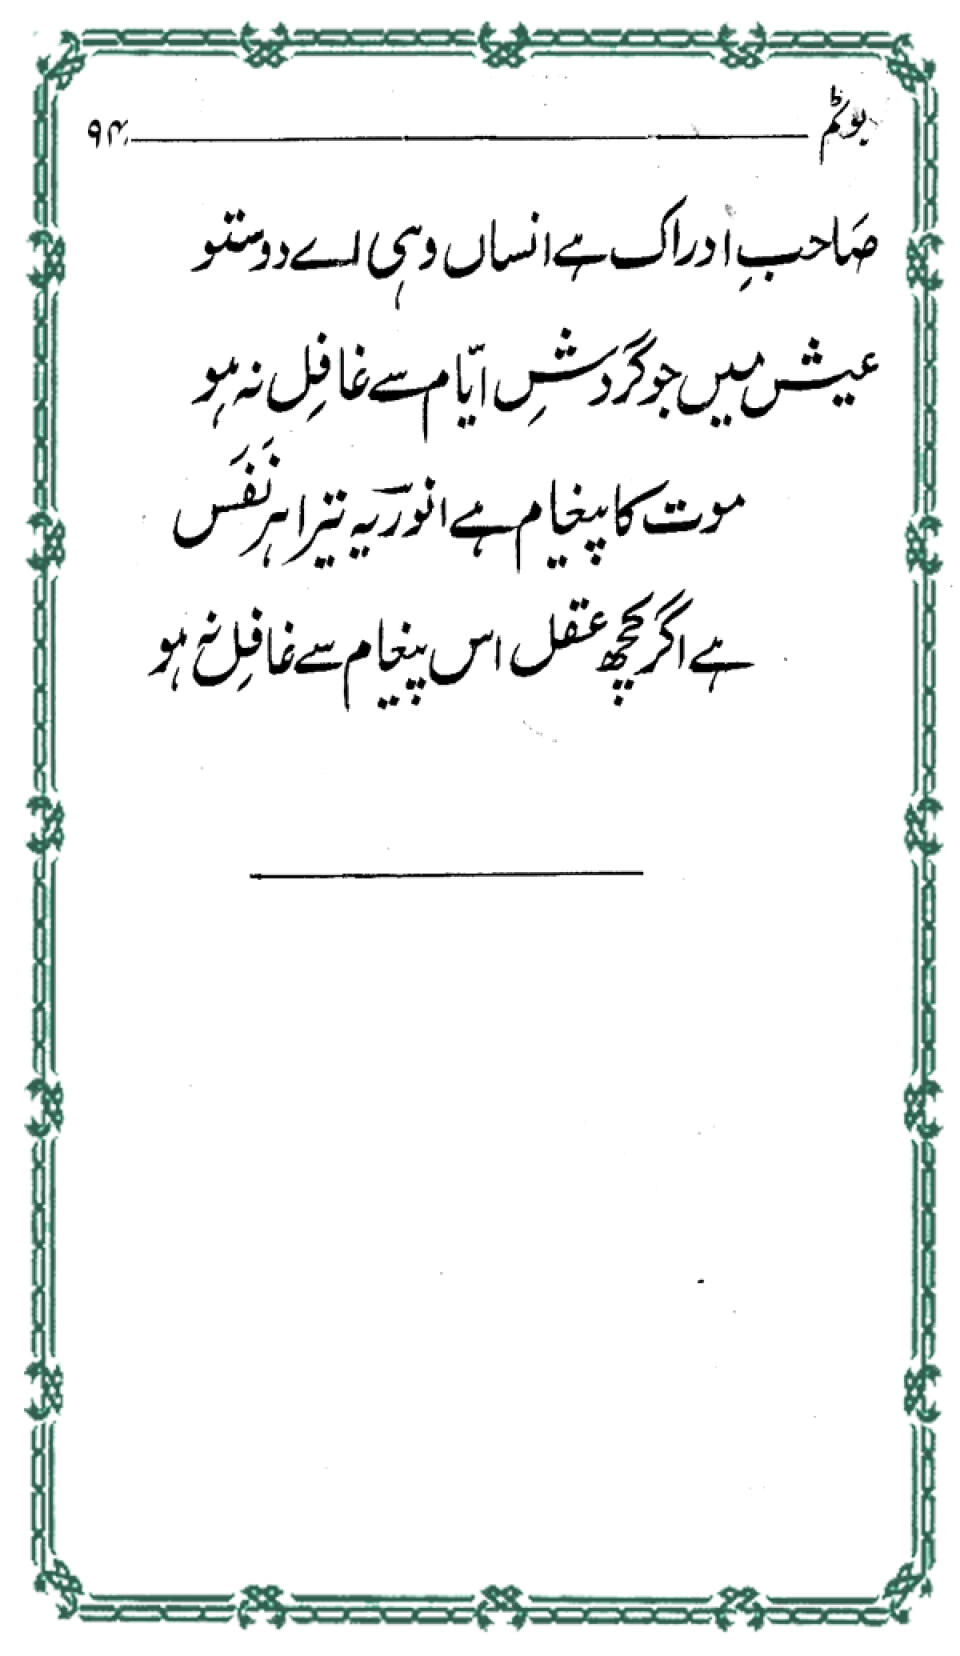 بوکٹم ۹۴
صَاحبِ ادراک ہے انساں وہی اے دوستو
عیش میں جو گردشِ ایّام سے غافِل نہ ہو
موت کا پیغام ہے انورؔ یہ تیرا ہر نَفَس
ہے اگر کچھ عقل اس پیغام سے غافِل نہ ہو